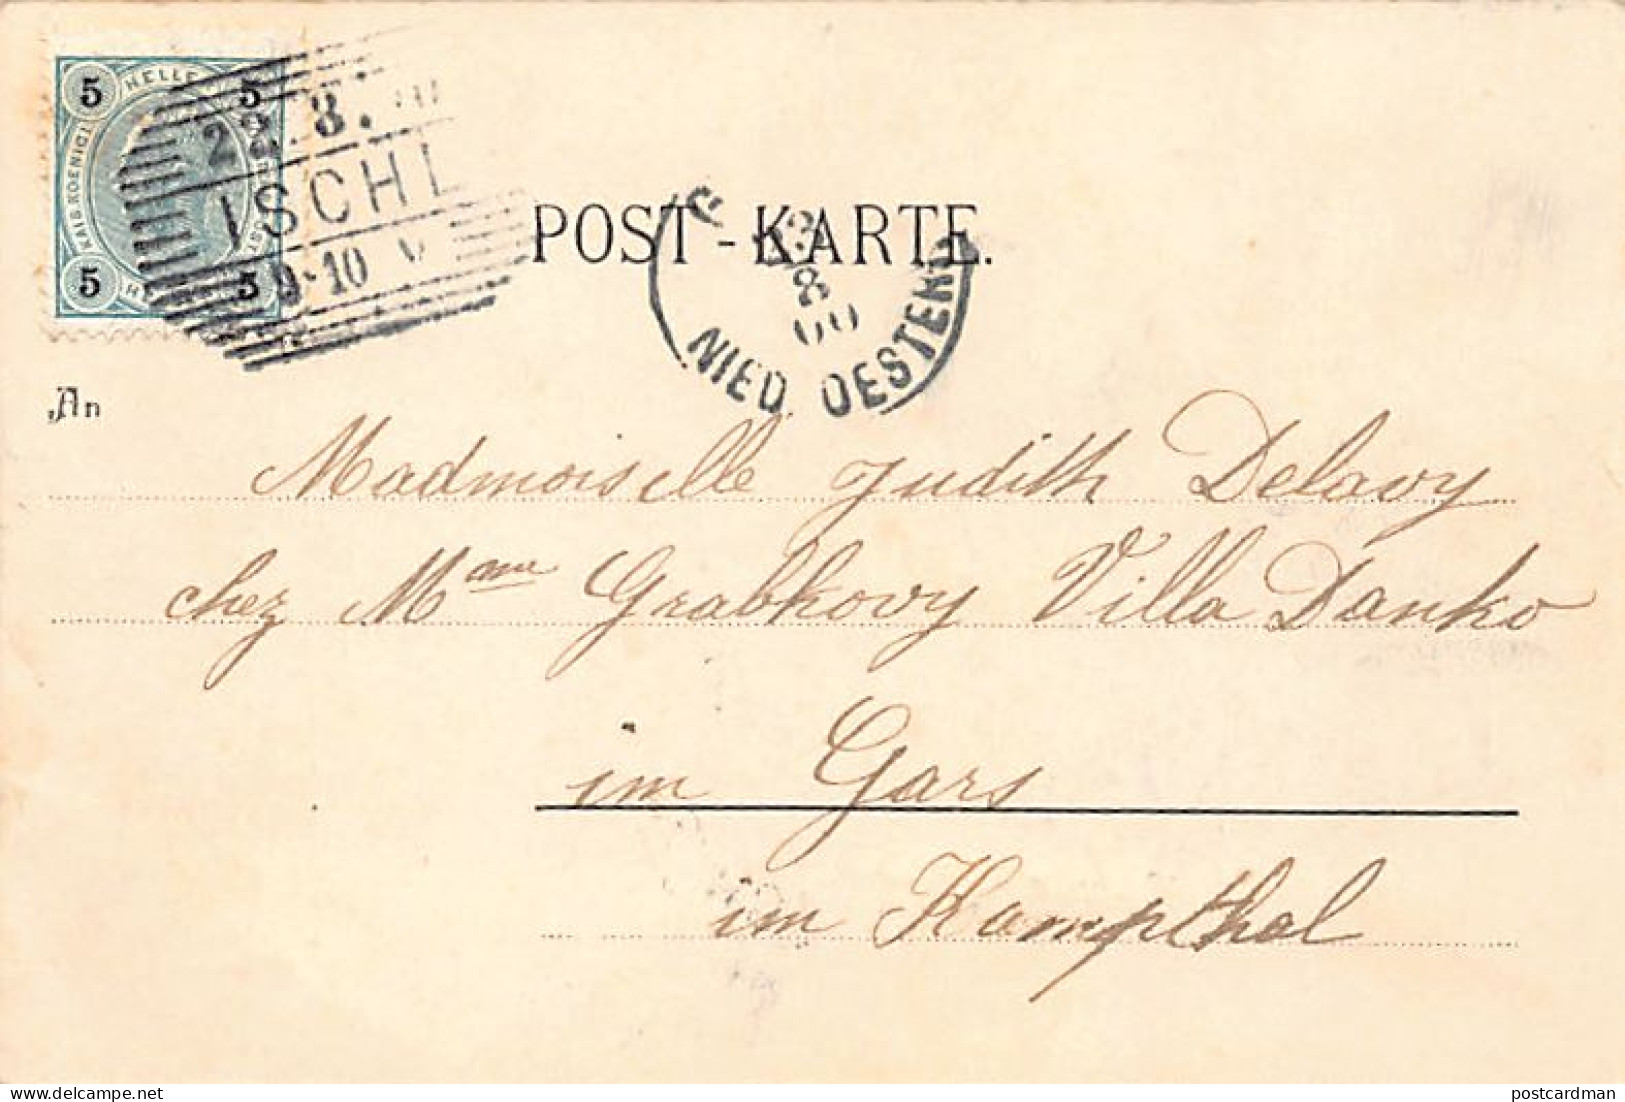 5 HELLE 5
KAIS.KOENIGL
5 5
22.8.
ISCHL
9·10 V
POST-KARTE.
G
23
8
00
NIED. OESTERR
An
Mademoiselle Judith Delavy
chez Mme Grabkovy Villa Danko
im Gars
im Kampthal
delcampe.net
postcardman